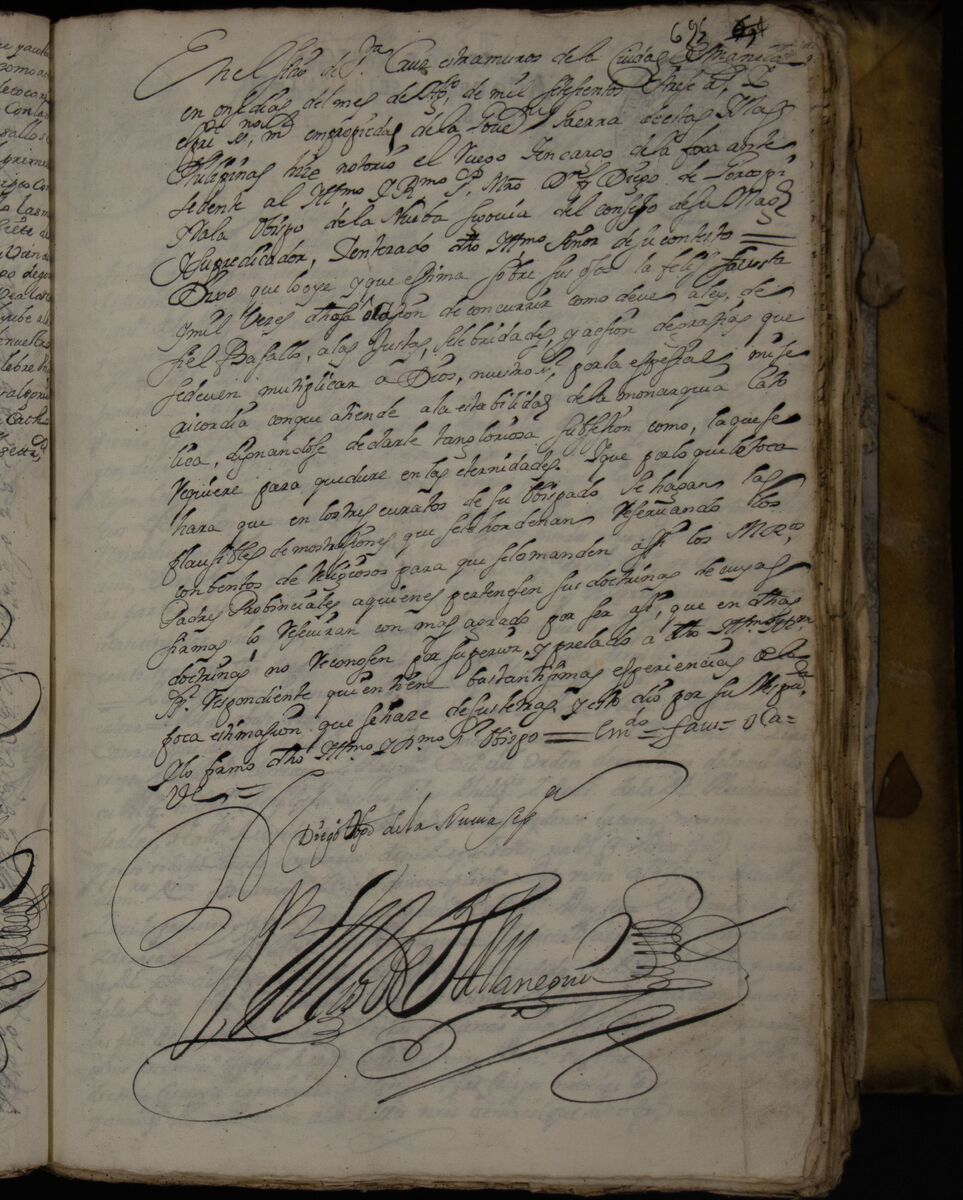 En el sitio de Sta. Cruz estramuros de la Ciudad de Manila
en onse dias del mes de de mil setesientos
esno. mr. en propiedad de la de Guerra de estas Yslas
Philipinas hize notorio el Ruego y encargo de la foxa ante
sedente al Yttmo y Rmo Sr. Mro. Dn. fr. Diego de Gorospe
Yrala Obispo de la Nueba Segovia del consejo de su Magd.
y su predicador, y enterado dho Yttmo Señor de su contesto
Dixo que lo oye y que estima sobre sus ojos la feliz fausta
y mil vezes dhosa ocasion de concurrir como deve a ley, de
fiel Basallo, a las Justas, selebridades, y acsion de grasias que
se deven multiplicar a Dios, nuestro Sr. por la espesial mise
ricordia con que atiende a la estabilidad de la monarquia Cato
lica, dignandose de darle tan gloriosa subsesion como, la que se
requiere para que dure en las eternidades. Y que por lo que le toca
hara que en los tres curatos de su Obispado se hagan las
plausibles demostrasiones que se le hordenan reservando los
conbentos de Religiosos para que se lo manden assi los MRos,
Padres Probinciales a quienes pertenesen sus doctrinas de cuyas
firmas lo reseviran con mas agrado por ser asi, que en dhas
doctrinas no reconosen por superior, y prelado a dho Yttmo Sor.
Respondiente quien tiene bastantisimas esperiencias de la
poca estimasion que se haze de sus letras y esto dio por su Respta.
Y lo firmo dho Yttmo y Rmo Sr. Obispo = Emdo = faus = oca =
Vle =
Diego Obpo de la Nueva Sega